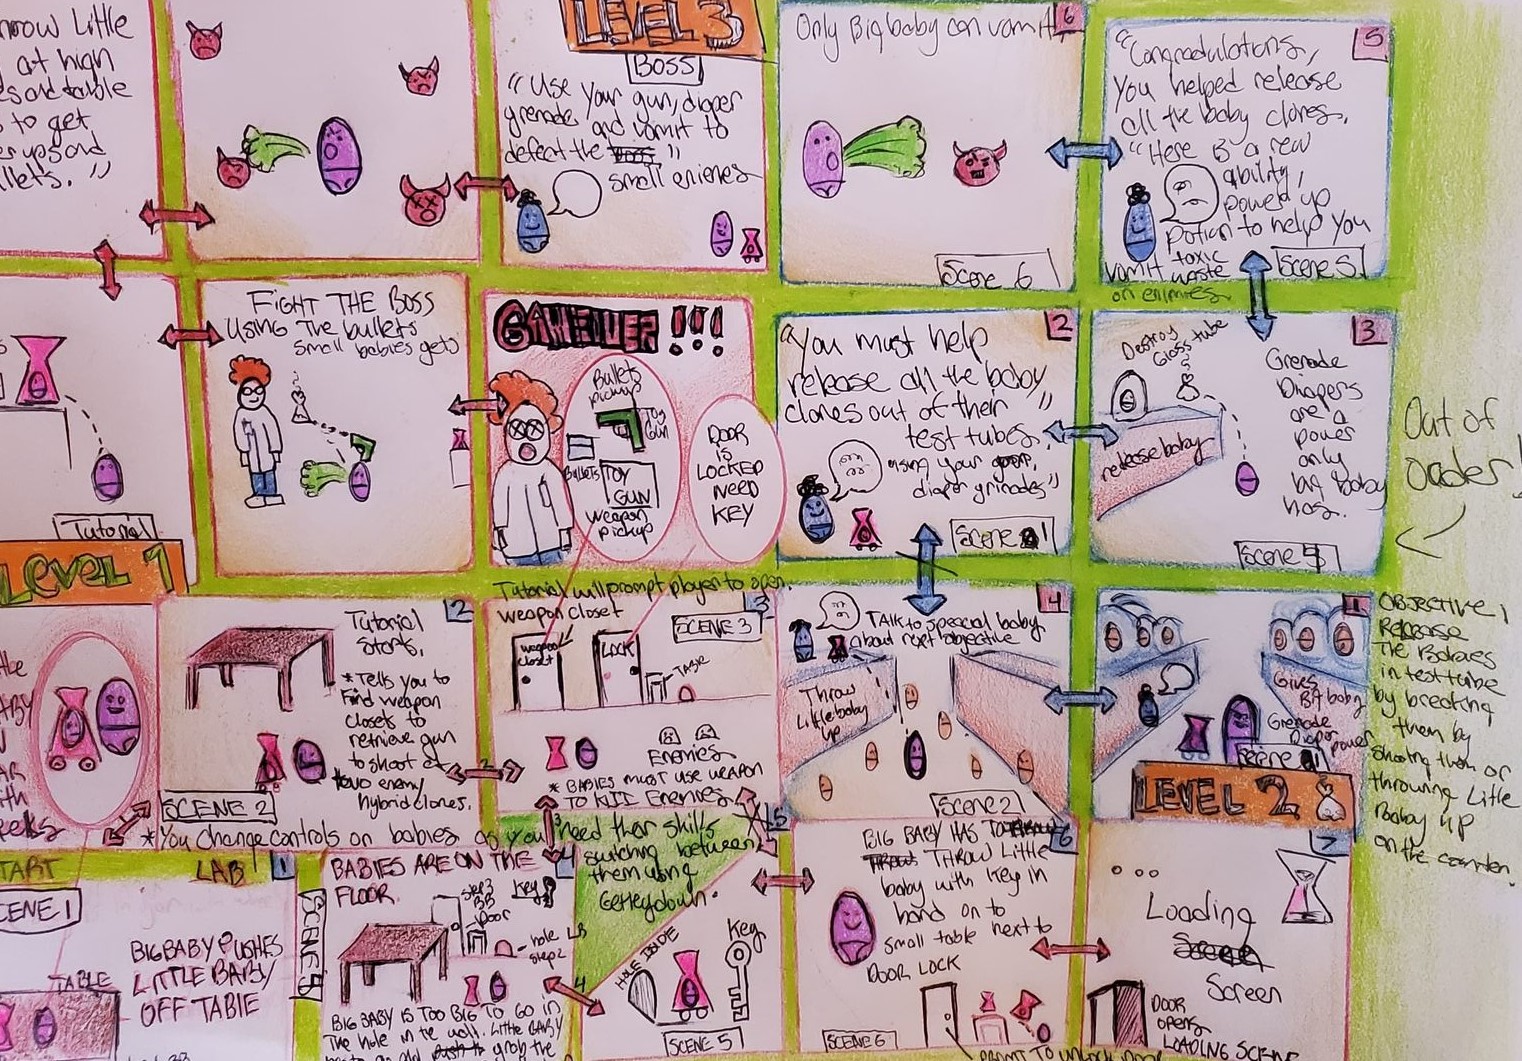 row Little
at high
to get
LEVEL 3
BOSS
"Use your gun, diaper
grenade and vomit to
defeat the "
small enimes
Only Big baby can vomit
6
Scene 6
5
"Congradulations,
you helped release
all the baby clones.
"Here is a new
ability,
powerd up
potion to help you
vomit toxic
waste
on enimes
Scene 5
Tutorial
LEVEL 1
FIGHT THE BOSS
Using The bullets
small babies gets
GAMEOVER !!!
Bullets
pickup
Toy
Gun
Bullets
TOY
GUN
Weapon
pickup
DOOR
IS
LOCKED
NEED
KEY
2
"You must help
release all the baby
clones out of their
test tubes,"
using your
diaper grinades"
Scene 1
3
Destroy
Glass tube
release baby
Grenade
Diapers
are a
power
only
big Baby
has.
Scene
Out of
order!
2
Tutorial
starts.
*Tells you to
Find weapon
closets to
retrieve gun
to shoot at
enemy
hybrid clones.
SCENE 2
Tutorial will prompt player to open
weapon closet
3
SCENE 3
weapon
closet
LOCK
TABLE
Enemies
* BABIES must use weapon
TO Kill Enemies
4
TALK to special baby
about next objective
Throw
Little baby
up
Scene 2
1
Gives
Big baby
Grenade
Diaper
power
LEVEL 2
OBJECTIVE 1
Release
The Babies
in test tube
by breaking
them by
shooting them or
throwing Little
Baby up
on the
*You change controls on babies as you need ther skills
swiching between
them using
Getkeydown.
START
LAB
1
SCENE 1
TABLE
BIG BABY PUSHES
LITTLE BABY
OFF TABLE
4
SCENE 4
BABIES ARE ON THE
FLOOR
step 3
BB
Door
key
hole LB
step 2
BIG BABY IS TOO BIG TO GO IN
The hole in the wall. Little BABY
grab the
5
HOLE INSIDE
Key
SCENE 5
6
BIG BABY HAS TO
THROW Little
baby with key in
hand on to
small table next to
DOOR LOCK
SCENE 6
7
Loading
Screen
DOOR
opens
LOADING SCENE